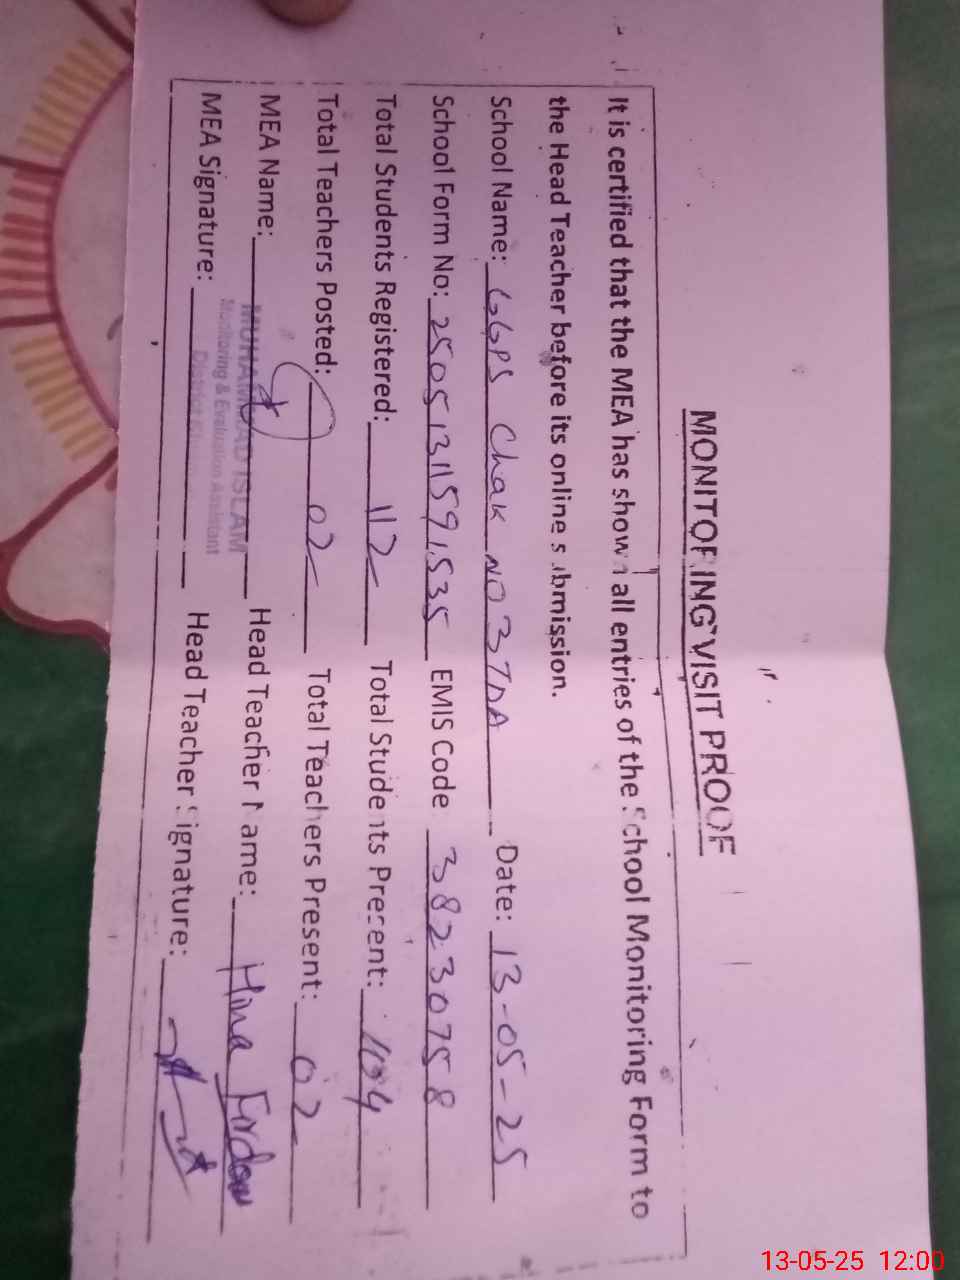 MONITORING VISIT PROOF
It is certified that the MEA has shown all entries of the School Monitoring Form to
the Head Teacher before its online submission.
School Name: GGPS Chak NO 37DA Date: 13-05-25
School Form No: 25051311591535 EMIS Code 38230758
Total Students Registered: 112 Total Students Present: 104
Total Teachers Posted: 02 Total Teachers Present: 02
MEA Name: MUHAMMAD ISLAM Head Teacher Name: Hina Firdous
Monitoring & Evaluation Assistant
MEA Signature: District Head Teacher Signature:
13-05-25 12:00